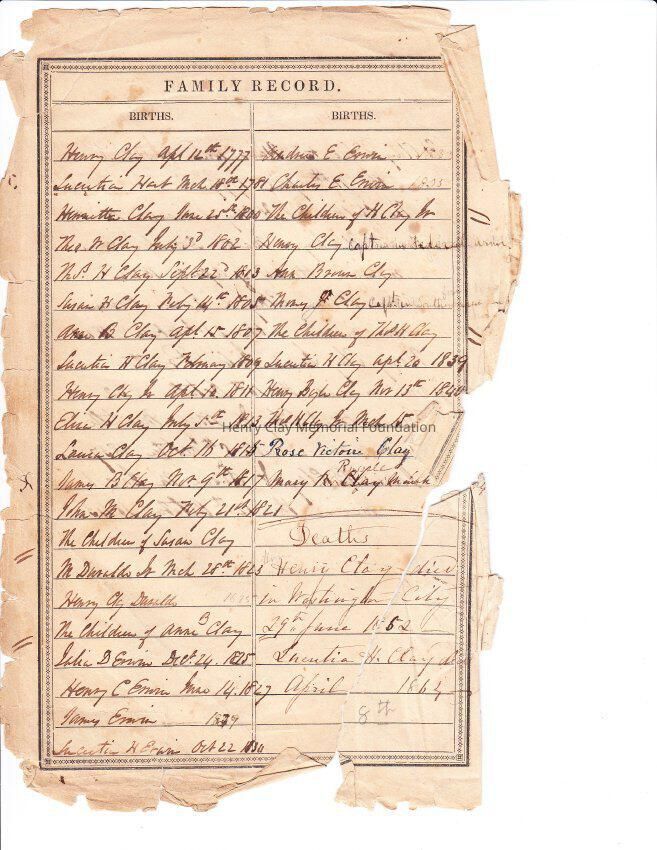 FAMILY RECORD.
BIRTHS.
Henry Clay Apl 12th 1777
Lucretia Hart Mch 18th 1781
Henrietta Clay June 25th 1800
Theo. W Clay July 3d 1802
Ths. H Clay Sept 22d 1803
Susan H Clay Feby 14th 1805
Anne B Clay Apl 15 1807
Lucretia H Clay February 1809
Henry Clay Jr Apl 10 1811
Eliza H Clay July 5th 1813
Laura Clay Oct 16 1815
James B Clay Nov 9th 1817
John M Clay Feby 21st 1821
The Children of Susan Clay
M Duralde Jr Mch 28th 1823
Henry Clay Duralde
The Children of Anne B Clay
Julia D Erwin Dect. 24. 1825
Henry C Erwin June 14. 1827
James Erwin
Lucretia H Erwin Oct 22 1830
BIRTHS.
Andrew E Erwin
Charles E Erwin 1835
The Children of H Clay Jr
Henry Clay Captain Federal army
Ann Brown Clay
Clay Captain
The Children of Thos H Clay
Lucretia H Clay apl. 20 1839
Henry Boyle Clay Nov 13th 1840
Clay Jr Mch 15
Rose Victoire Clay
Mary R Clay
Deaths
Henry Clay died
in Washington City
29th June 1852
Lucretia H. Clay
April 1864
8th
Henry Clay Memorial Foundation